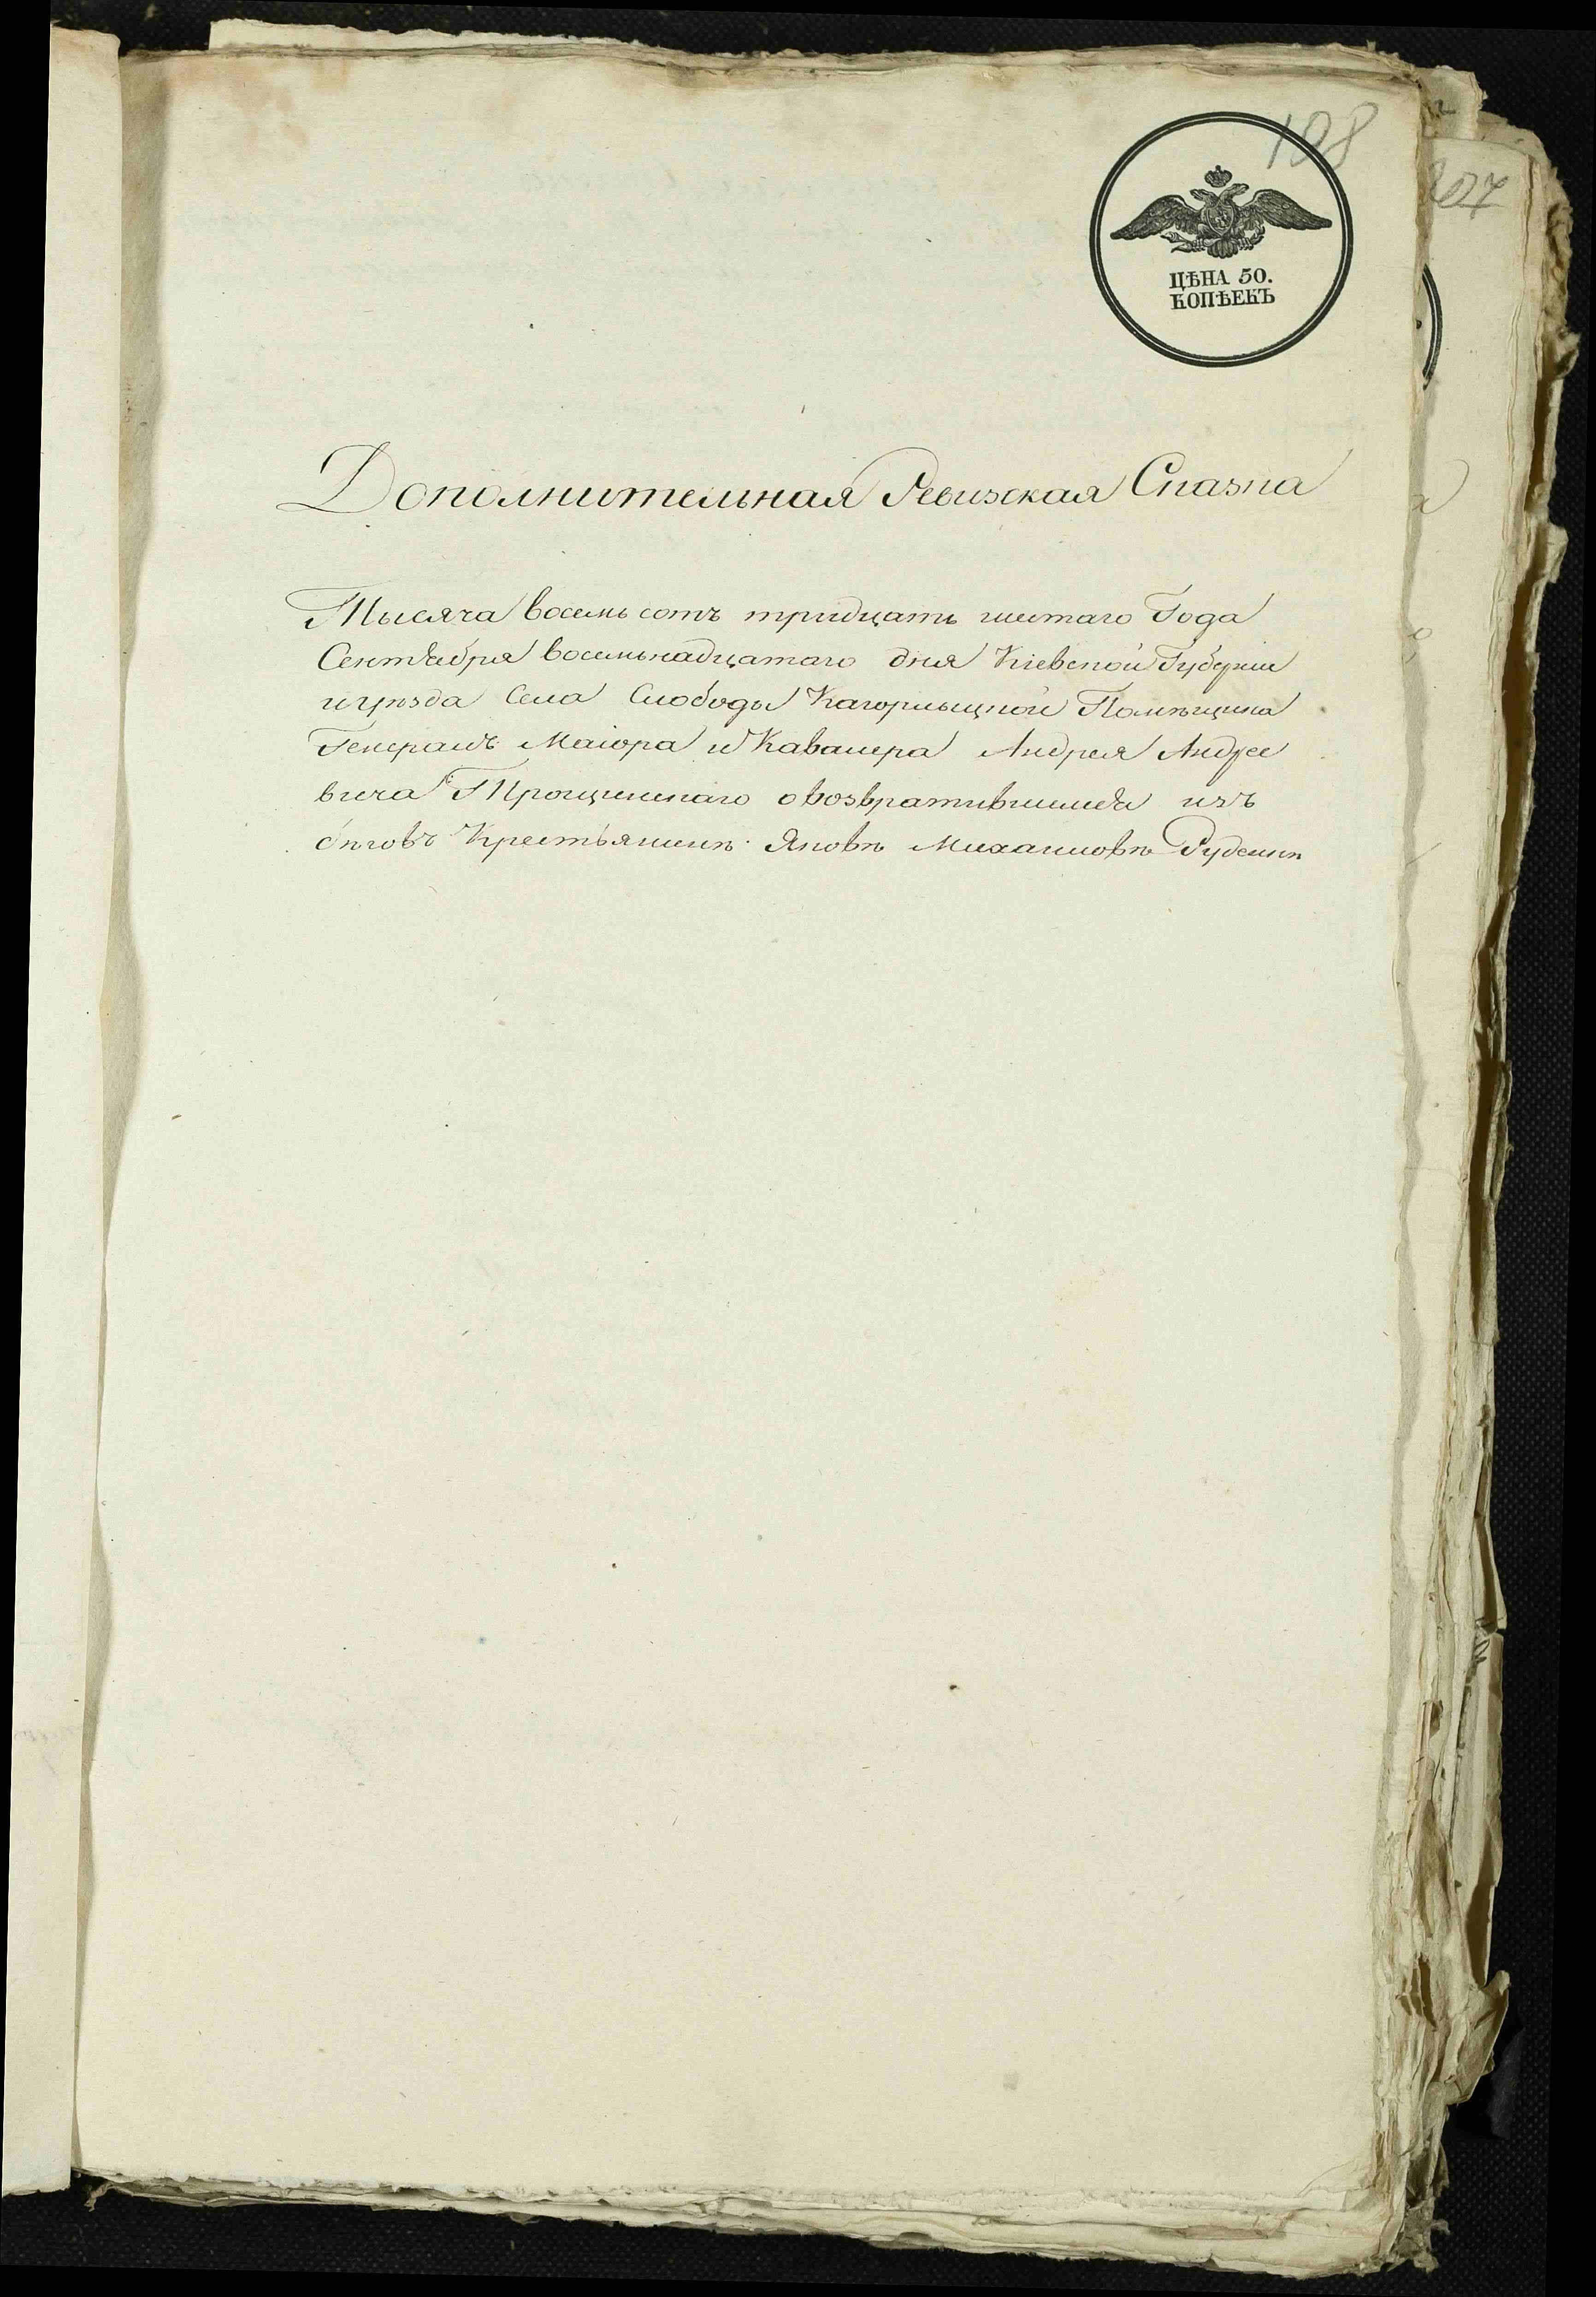 198
207
ЦѢНА 50.
КОПѢЕКЪ
Дополнительная Ревизская Сказка
Тысяча восемь сотъ тридцать шестаго Года
Сентября восемьнадцатаго дня Кіевской Губерніи
и уѣзда Села Слободы Кагорлыцкой Помѣщика
Генералъ Маіора и Кавалера Андрея Андрее
вича Трощинскаго о возвратившимся изъ
бѣговъ Крестьянинѣ Яковѣ Михайловѣ Руденкѣ